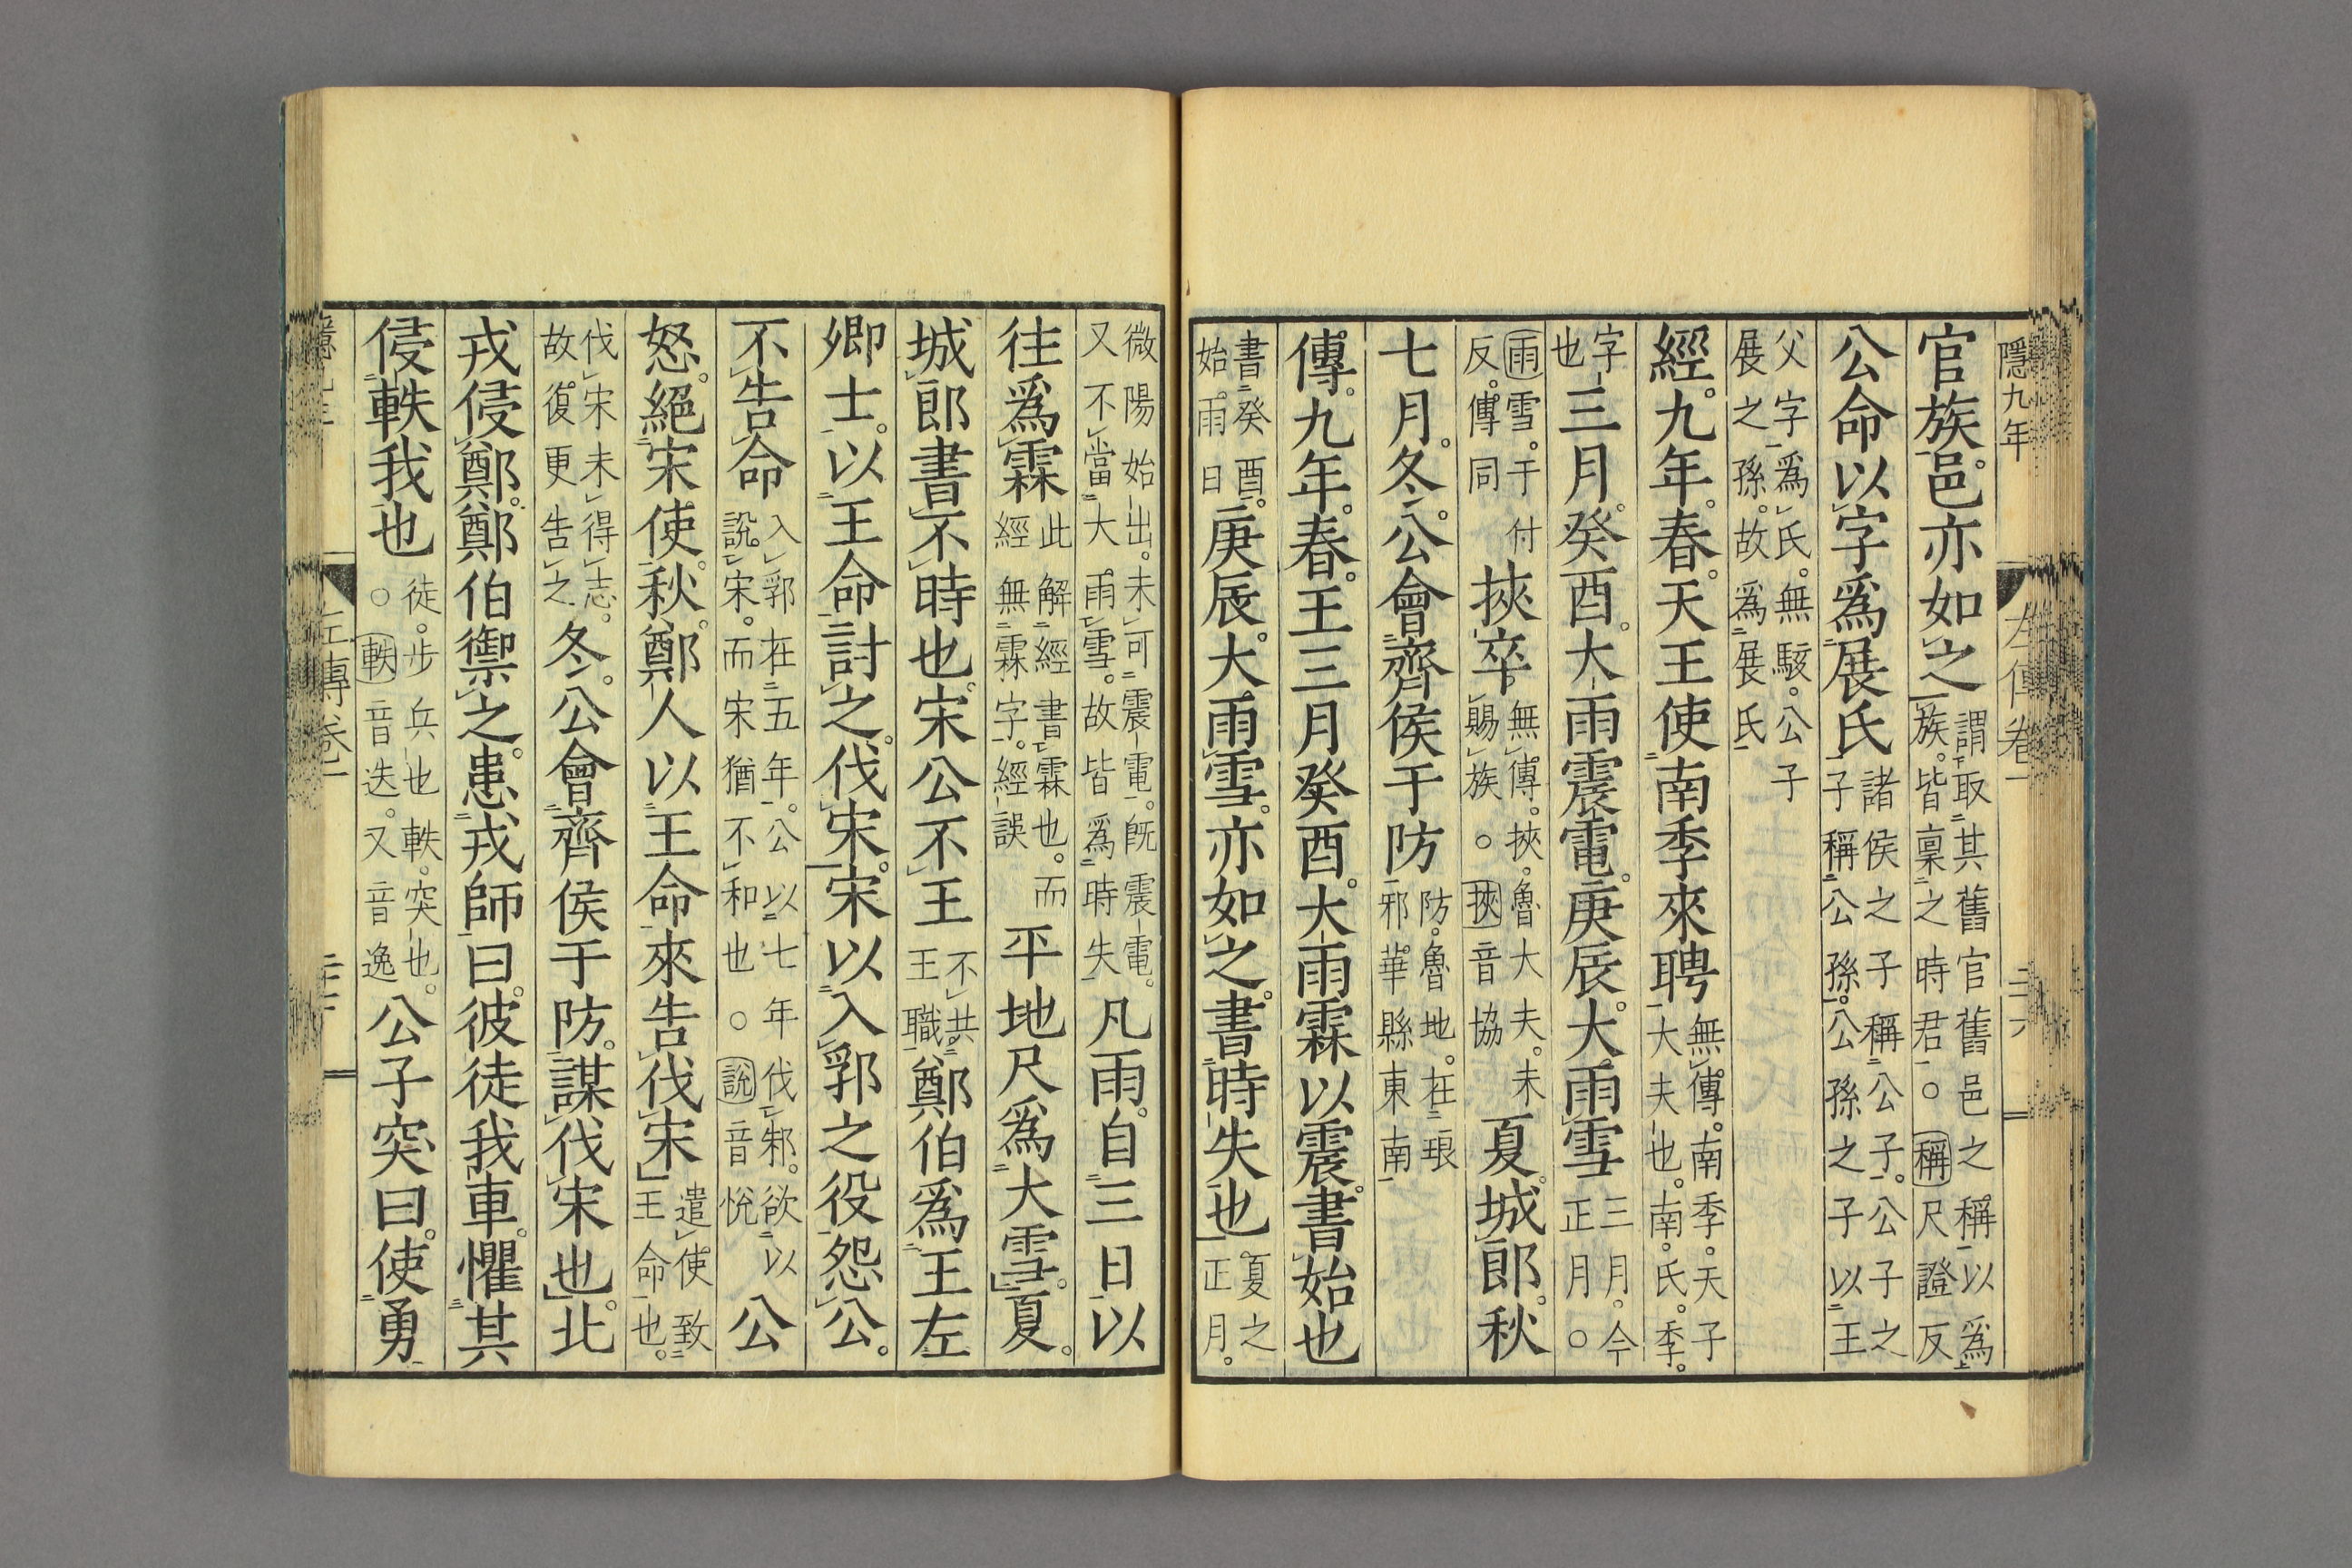 隱九年　左傳卷一
官族。邑亦如之謂取其舊官舊邑之稱以爲族。皆稟之時君。○稱尺證反
公命以字爲展氏諸侯之子稱公子。公子之子稱公孫。公孫之子以王
父字爲氏。無駭。公子展之孫。故爲展氏
經。九年。春。天王使南季來聘無傳。南季。天子大夫也。南。氏。季。
字也三月。癸酉。大雨震電。庚辰。大雨雪三月。今正月。○
雨雪。于付反。傳同挾卒無傳。挾。魯大夫。未賜族。○挾音協夏。城郎。秋
七月。冬。公會齊侯于防防。魯地。在琅邪華縣東南
傳。九年。春。王三月癸酉。大雨霖以震。書始也
書癸酉。始雨日庚辰。大雨雪。亦如之。書時失也。夏之正月。
微陽始出。未可震電。既震電。又不當大雨雪。故皆爲時失凡雨。自三日以
往爲霖此解經書霖也。而經無霖字。經誤平地尺爲大雪。夏。
城郎書不時也。宋公不王不共王職鄭伯爲王左
卿士。以王命討之。伐宋。宋以入郛之役怨公。
不告命入郛在五年。公以七年伐邾。欲以說宋。而宋猶不和也。○說音悅公
怒。絕宋使。秋。鄭人以王命來告伐宋遣使致王命也。
伐宋未得志。故復更告之冬。公會齊侯于防。謀伐宋也。北
戎侵鄭。鄭伯禦之。患戎師曰。彼徒我車。懼其
侵軼我也徒。步兵也軼。突也。○軼音迭。又音逸公子突曰。使勇
左傳卷一